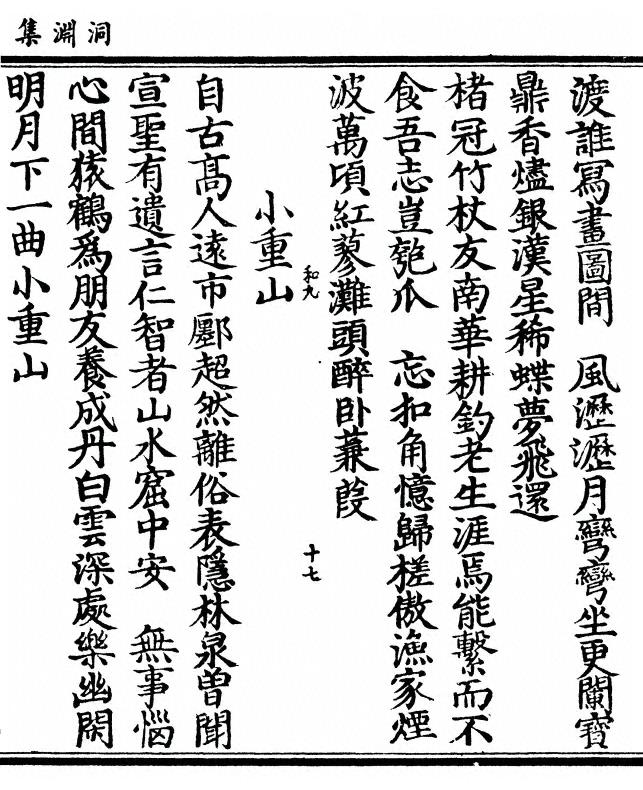 洞淵集
渡誰寫畫圖間　風瀝瀝月彎彎坐更闌寶
鼎香燼銀漢星稀蝶夢飛還
楮冠竹杖友南華耕釣老生涯焉能繫而不
食吾志豈匏瓜　忘扣角憶歸槎傲漁家煙
波萬頃紅蓼灘頭醉卧蒹葭
和九
十七
小重山
自古高人遠市郾超然離俗表隱林泉曾聞
宣聖有遺言仁智者山水窟中安　無事惱
心間猿鶴為朋友養成丹白雲深處樂幽閑
明月下一曲小重山